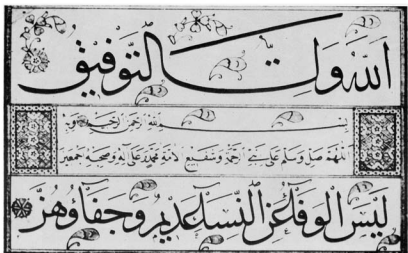 الله ولي التوفيق
بسم الله الرحمن الرحيم
اللهم صل وسلم على نبي الرحمة وشفيع الأمة محمد وعلى آله وصحبه أجمعين
ليس الوفا عن النسا عديم وجفاؤهن